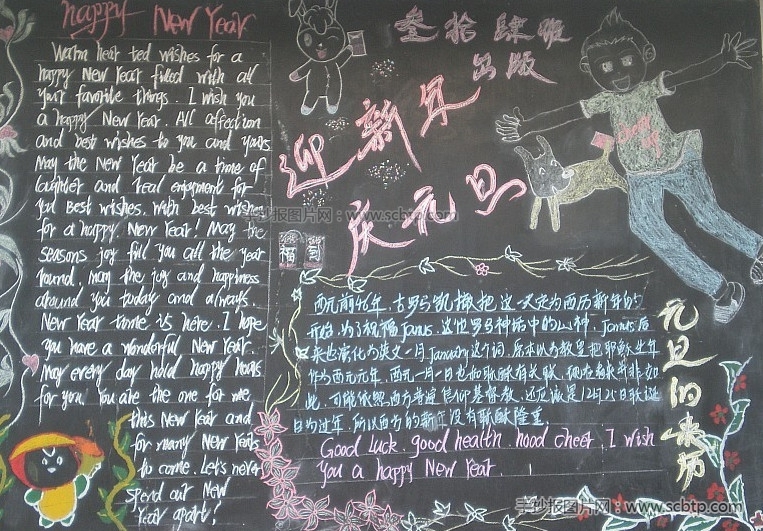 happy New Year
Warm hear ted wishes for a
happy New Year filled with all
your favorite things. I wish you
a happy New Year. All affection
and best wishes to you and yours
May the New Year be a time of
laughter and real enjoyment for
you Best wishes. with best wishes
for a happy New Year! May the
seasons joy fill you all the year
round. may the joy and happiness
around you today and always.
New Year time is here. I hope
you have a wonderful New Year.
May every day hold happy hours
for you. You are the one for me
this New Year and
for many New Years
to come. Let's never
spend our New
Year apart!
叁拾肆班
出版
迎新年
庆元旦
手抄报图片网：www.scbtp.com
福
元旦的来历
西元前46年，古罗马凯撒把这一天定为西历新年的
开始，为了祝福Janus，这位罗马神话中的 神，Janus后
来也演化为英文一月January这个词，原本以为教皇把耶稣生年
作为西元元年，西元一月一日也和耶稣有关联，
此，可能依照西方普遍信仰基督教，还应该是12月25日耶诞
日为过年，所以西方的新年没有耶稣隆重。
Good luck, good health, hood cheer. I wish
you a happy New Year.
手抄报图片网：www.scbtp.com